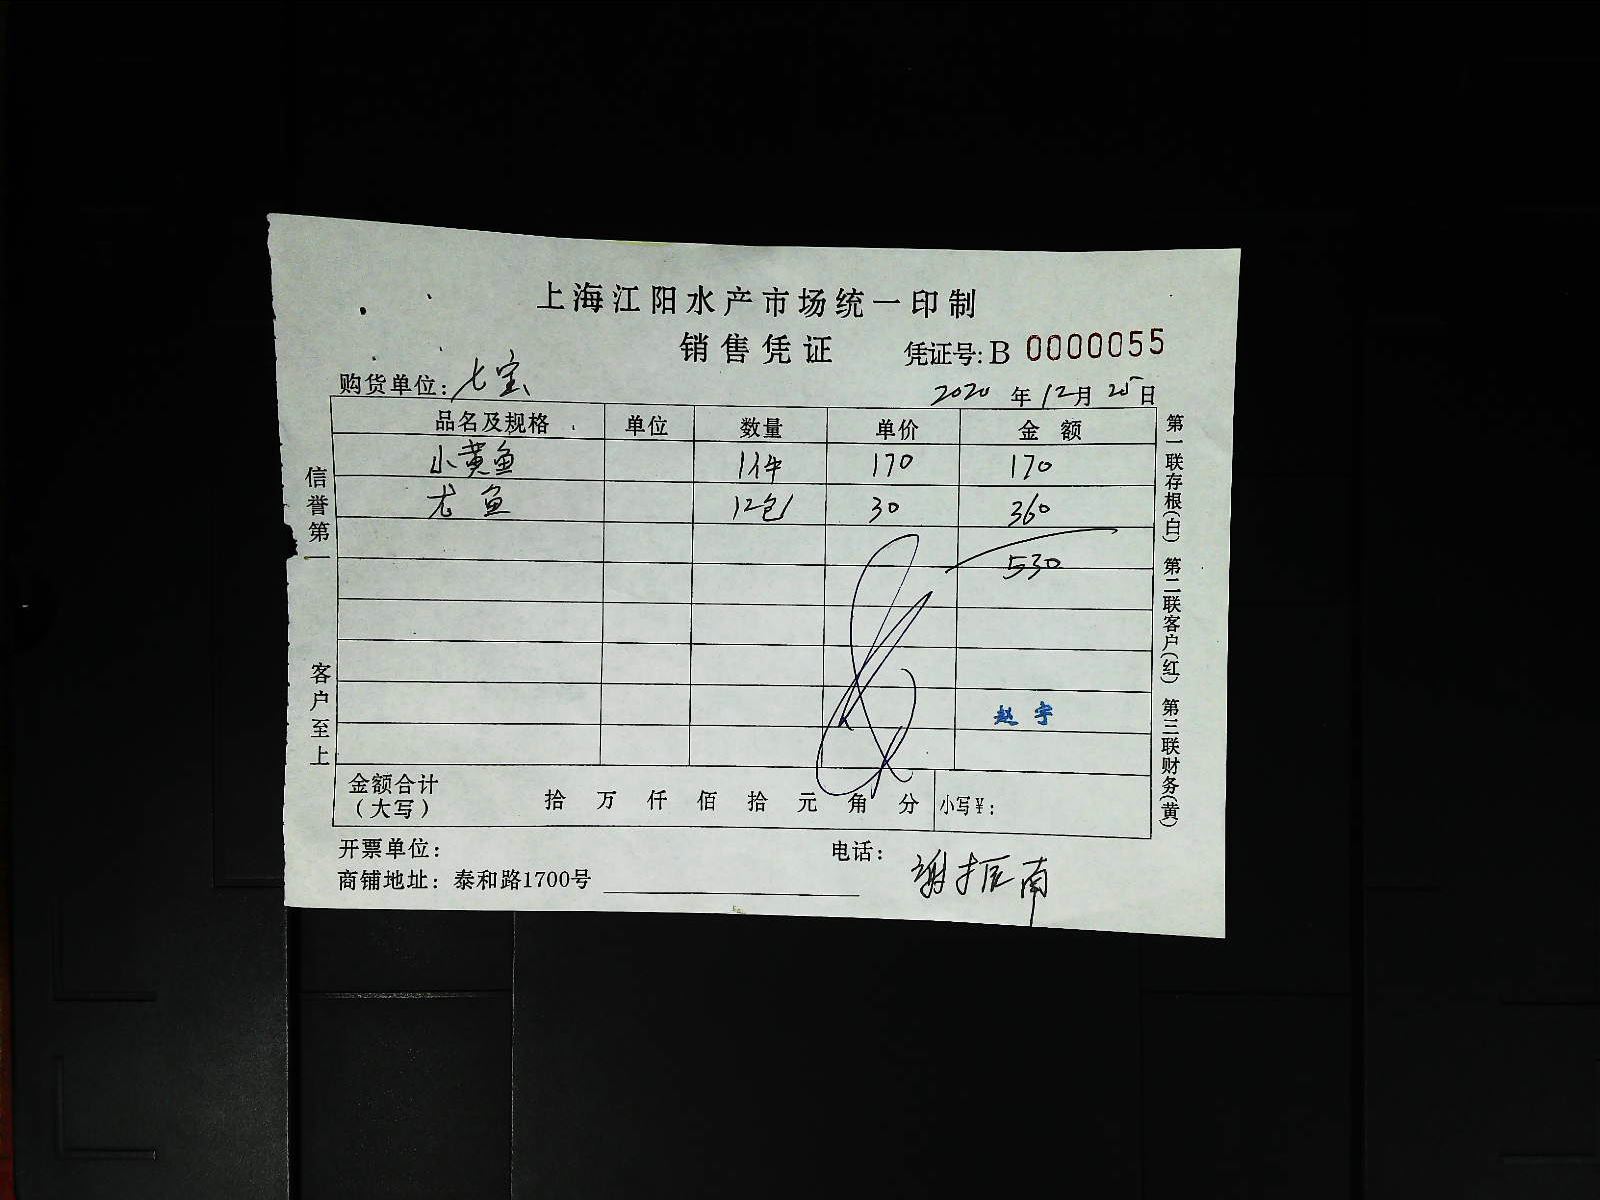 上海江阳水产市场统一印制
销售凭证 凭证号: B 0000055
购货单位: 七宝 2020 年 12 月 25 日
品名及规格 单位 数量 单价 金 额
小黄鱼 1件 170 170
尤鱼 12包 30 360
530
赵宇
金额合计(大写) 拾 万 仟 佰 拾 元 角 分 小写¥:
开票单位: 电话:
商铺地址: 泰和路1700号 谢振南
信誉第一 客户至上
第一联存根(白) 第二联客户(红) 第三联财务(黄)